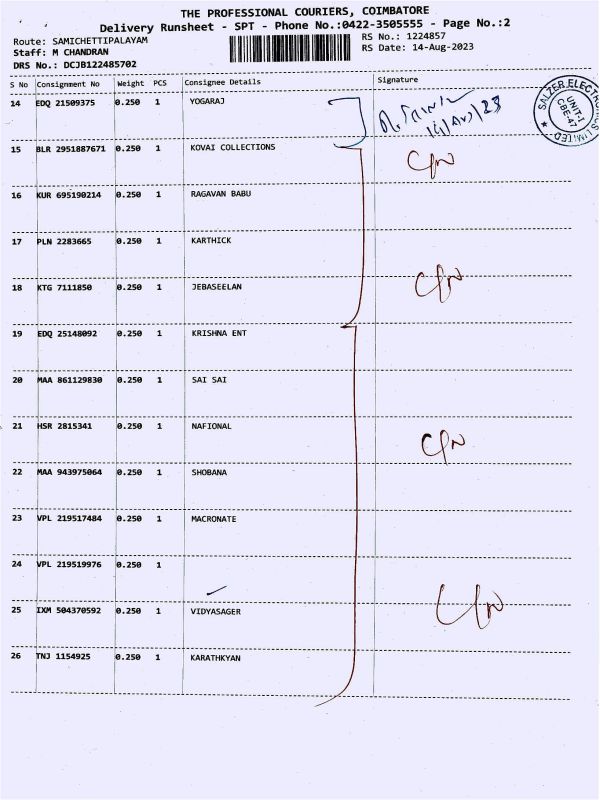 THE PROFESSIONAL COURIERS, COIMBATORE
Delivery Runsheet - SPT - Phone No.:0422-3505555 - Page No.:2
Route: SAMICHETTIPALAYAM RS No.: 1224857
Staff: M CHANDRAN RS Date: 14-Aug-2023
DRS No.: DCJB122485702
S No Consignment No Weight PCS Consignee Details Signature
14 EDQ 21509375 0.250 1 YOGARAJ
SALZER ELECTRONICS LIMITED
UNIT-1
CBE-47
15 BLR 2951887671 0.250 1 KOVAI COLLECTIONS
16 KUR 695190214 0.250 1 RAGAVAN BABU
17 PLN 2283665 0.250 1 KARTHICK
18 KTG 7111850 0.250 1 JEBASEELAN
19 EDQ 25148092 0.250 1 KRISHNA ENT
20 MAA 861129830 0.250 1 SAI SAI
21 HSR 2815341 0.250 1 NAFIONAL
22 MAA 943975064 0.250 1 SHOBANA
23 VPL 219517484 0.250 1 MACRONATE
24 VPL 219519976 0.250 1
25 IXM 504370592 0.250 1 VIDYASAGER
26 TNJ 1154925 0.250 1 KARATHKYAN